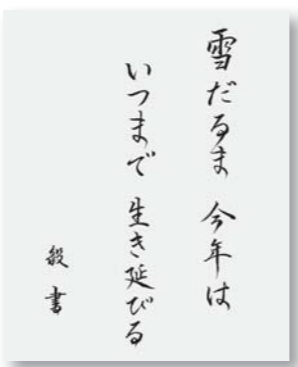 雪だるま 今年は
いつまで 生き延びる
毅書